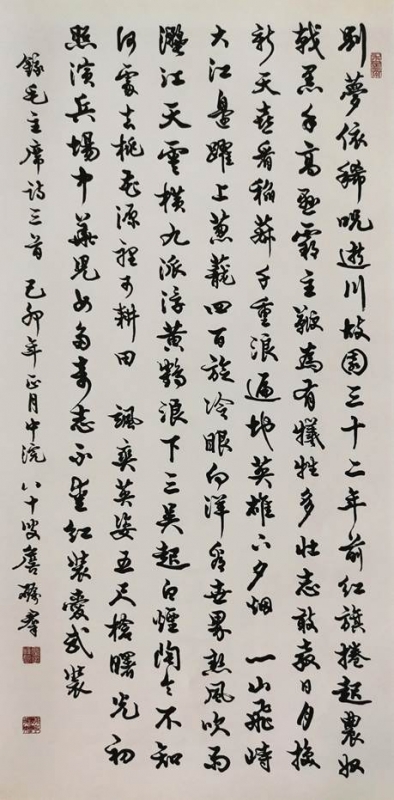 別夢依稀咒逝川故園三十二年前紅旗捲起農奴
戟黑手高懸霸主鞭為有犧牲多壯志敢教日月換
新天喜看稻菽千重浪遍地英雄下夕烟 一山飛峙
大江邊躍上蔥蘢四百旋冷眼向洋看世界熱風吹雨
灑江天雲橫九派浮黃鶴浪下三吳起白煙陶令不知
何處去桃花源裡可耕田 颯爽英姿五尺槍曙光初
照演兵場中華兒女多奇志不愛紅裝愛武裝
錄毛主席詩三首 己卯年正月中浣 八十叟詹